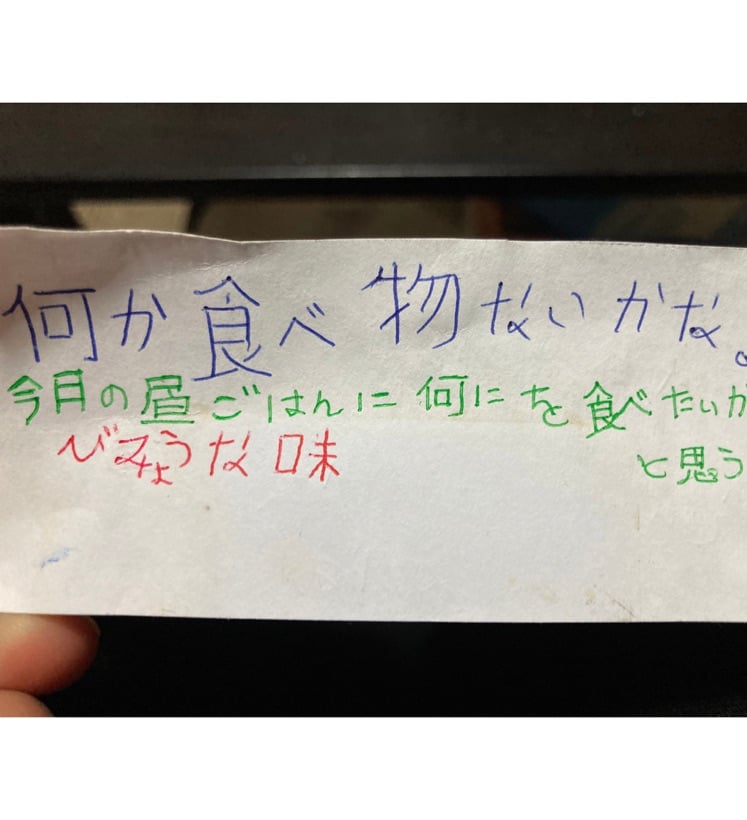 何か食べ物ないかな。
今月の昼ごはんに何にを食べたいか
と思う
びみょうな味